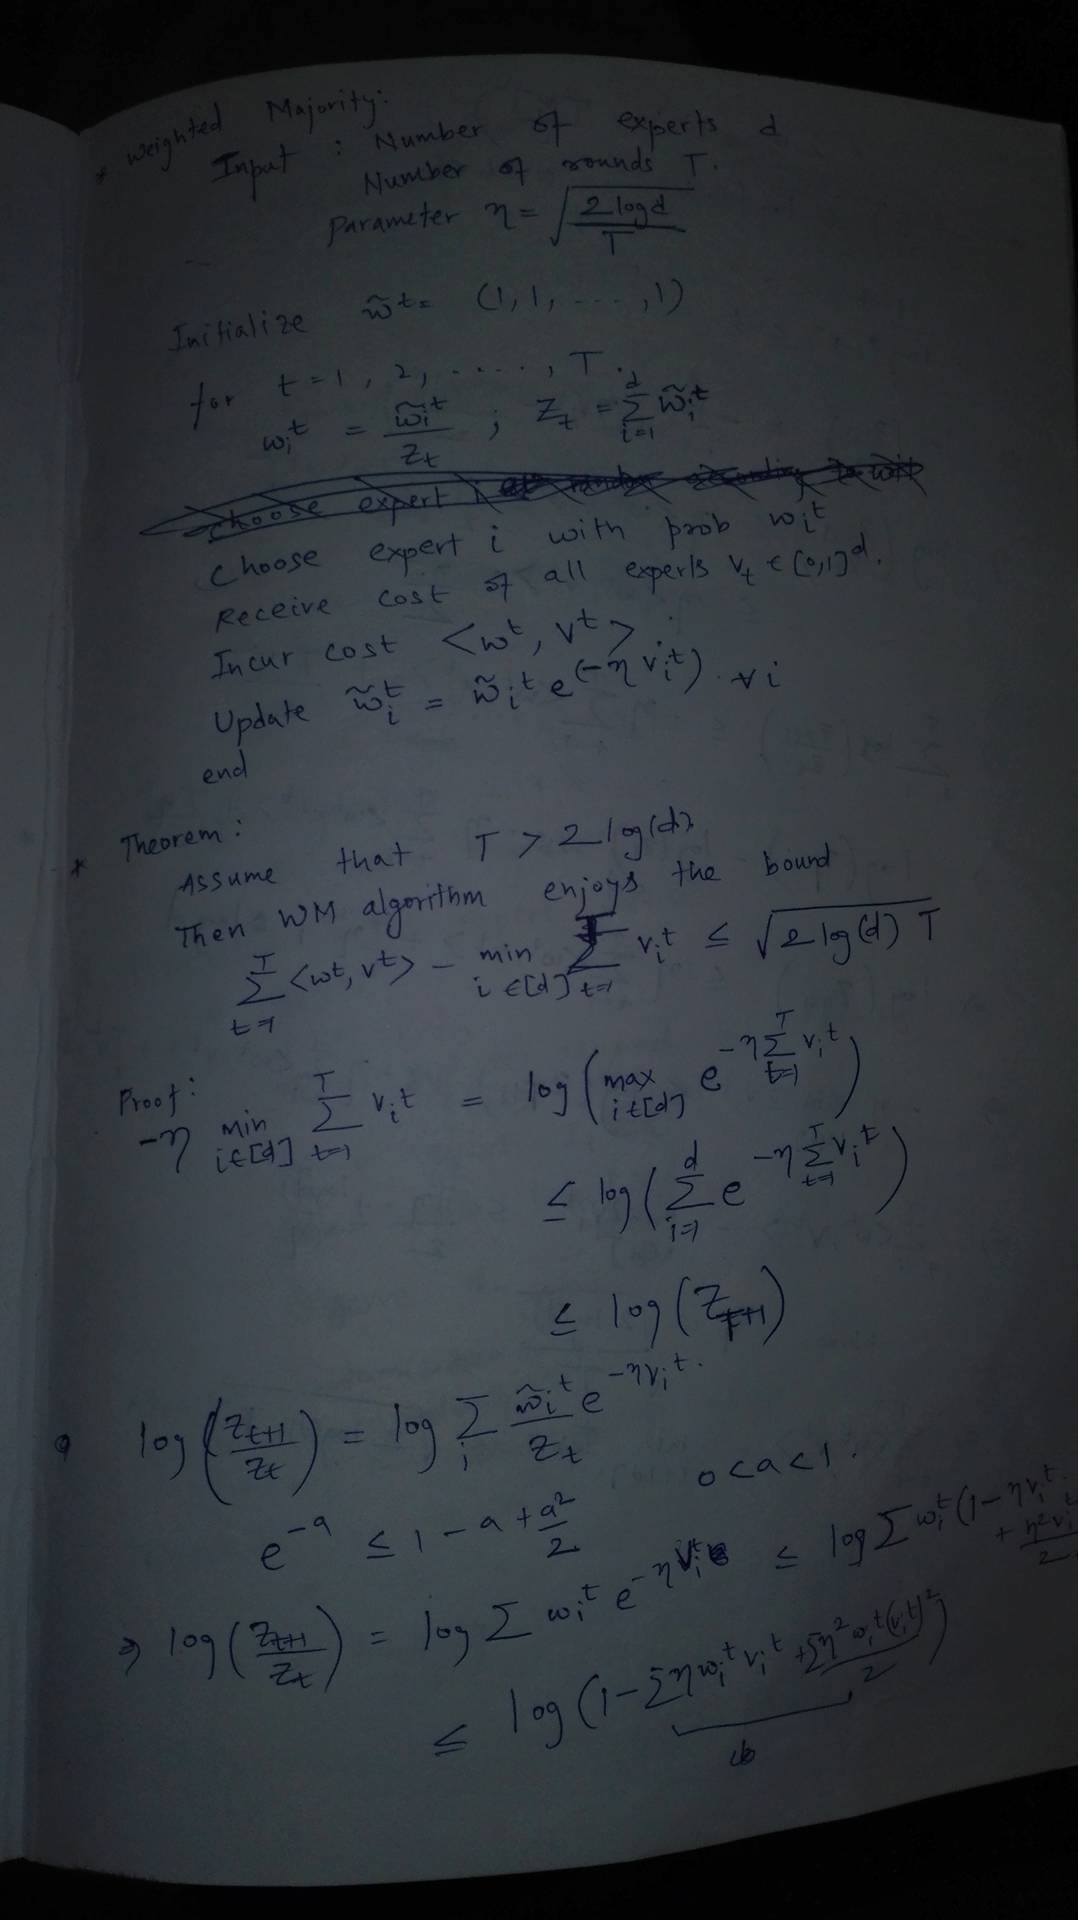 * Weighted Majority:
Input : Number of experts d
Number of rounds T.
Parameter η = √(2 log d / T)
Initialize w̃^t = (1, 1, ...., 1)
for t = 1, 2, ....., T.
w_i^t = w̃_i^t / Z_t ; Z_t = Σ_{i=1}^d w̃_i^t
choose expert i
Choose expert i with prob w_i^t
Receive cost of all experts v_t ∈ [0,1]^d.
Incur cost <w^t, v^t>
Update w̃_i^t = w̃_i^t e^(-η v_i^t) . ∀i
end
* Theorem :
Assume that T > 2 log(d)
Then WM algorithm enjoys the bound
Σ_{t=1}^T <w^t, v^t> - min_{i∈[d]} Σ_{t=1}^T v_i^t ≤ √(2 log(d) T)
Proof :
-η min_{i∈[d]} Σ_{t=1}^T v_i^t = log( max_{i∈[d]} e^{-η Σ_{t=1}^T v_i^t} )
≤ log( Σ_{i=1}^d e^{-η Σ_{t=1}^T v_i^t} )
≤ log( Z_{T+1} )
log( Z_{t+1} / Z_t ) = log Σ_i (w̃_i^t / Z_t) e^{-η v_i^t} .
e^{-a} ≤ 1 - a + a²/2 0 < a < 1 .
⇒ log( Z_{t+1} / Z_t ) = log Σ w_i^t e^{-η v_i^t} ≤ log Σ w_i^t (1 - η v_i^t + η² v_i / 2
≤ log (1 - Σ η w_i^t v_i^t + Σ η² w_i^t (v_i^t)² / 2 )